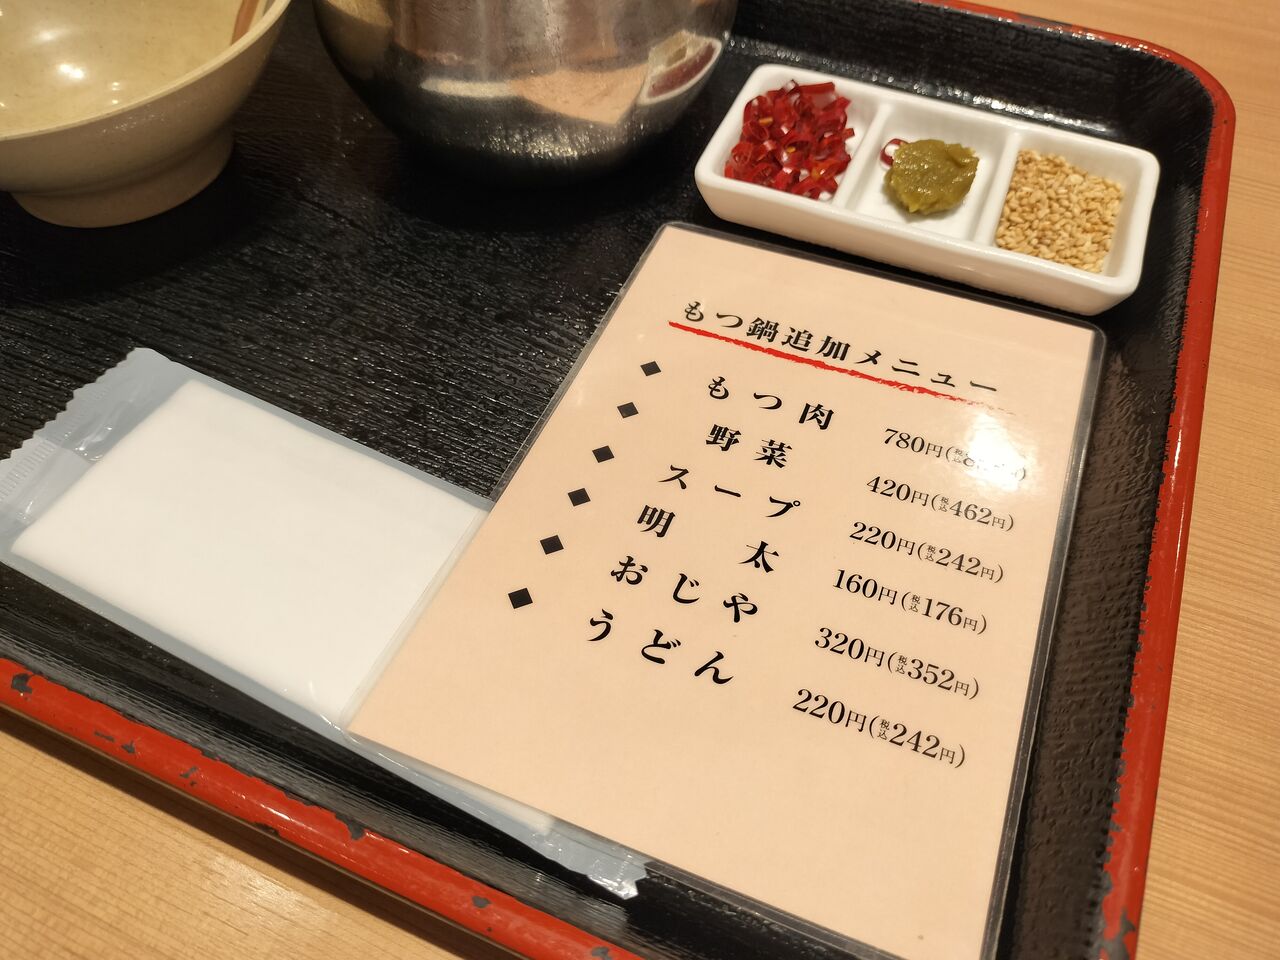 もつ鍋追加メニュー
◆ もつ肉 780円(税込8
◆ 野菜 420円(税込462円)
◆ スープ 220円(税込242円)
◆ 明太 160円(税込176円)
◆ おじや 320円(税込352円)
◆ うどん 220円(税込242円)